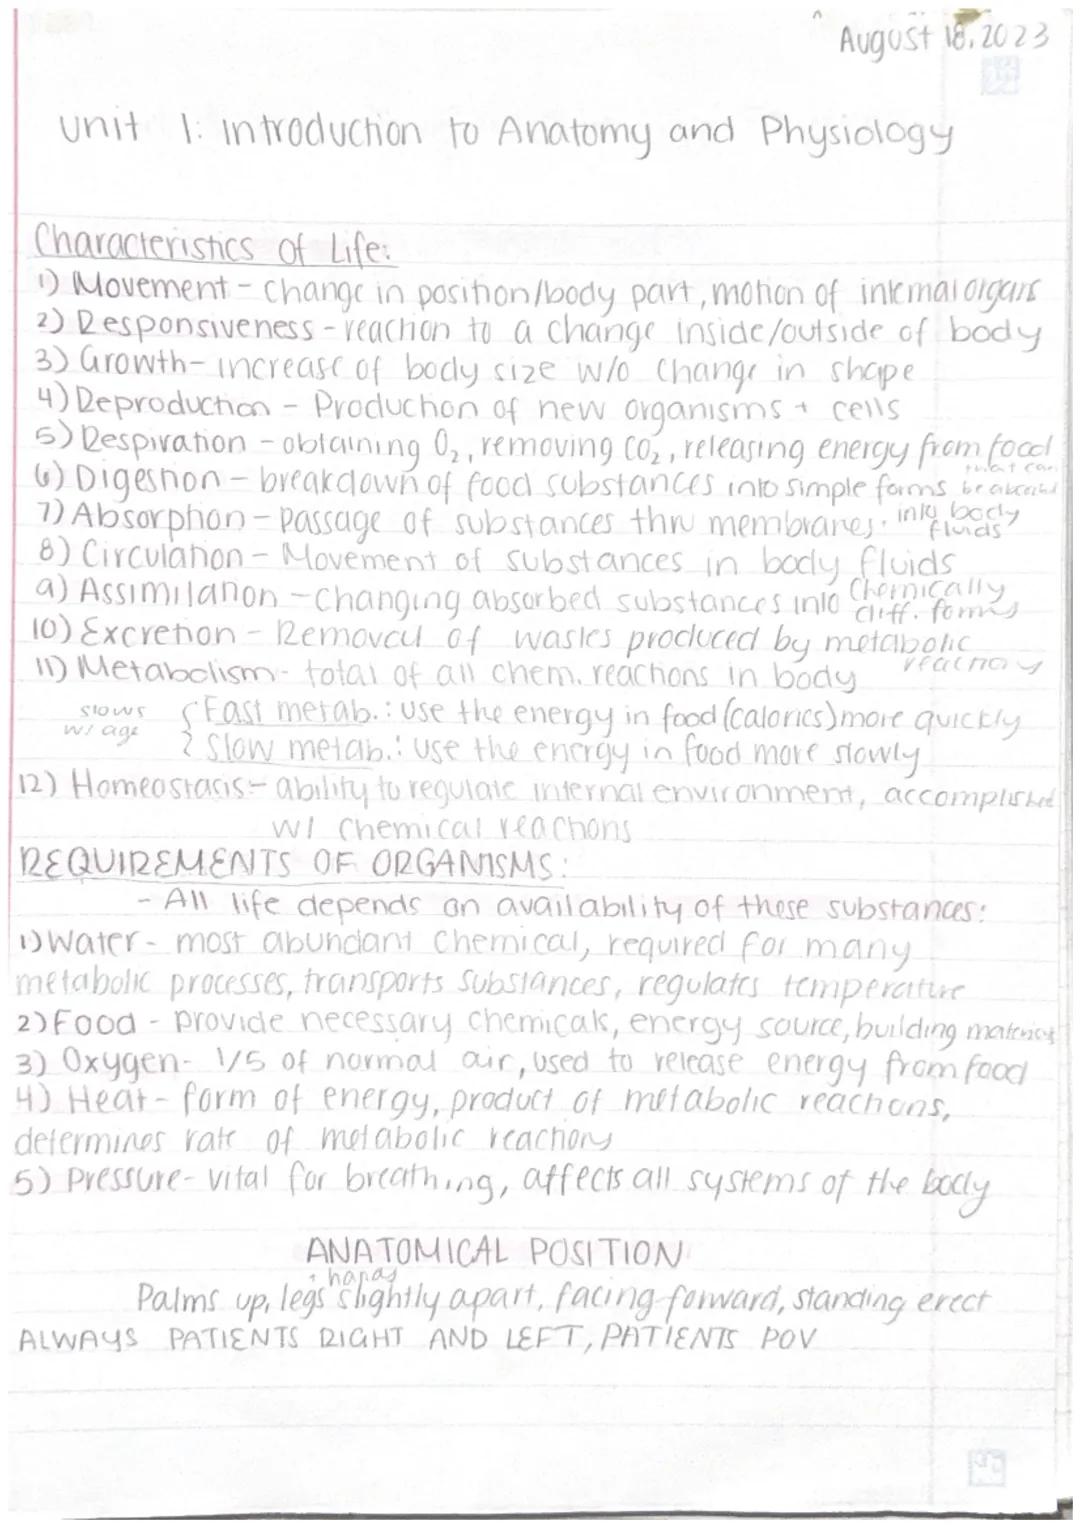 August 18, 2023
Unit 1: Introduction to Anatomy and Physiology
Characteristics of Life:
1) Movement - change in position/body part, motion of internal organs
2) Responsiveness - reaction to a change inside/outside of body
3) Growth - increase of body size w/o change in shape
4) Reproduction - Production of new organisms + cells
5) Respiration - obtaining O₂, removing CO₂, releasing energy from food
6) Digestion - breakdown of food substances into simple forms that can be absorbed
7) Absorption - Passage of substances thru membranes. into body fluids
8) Circulation - Movement of substances in body fluids
9) Assimilation - changing absorbed substances into chemically diff. forms
10) Excretion - Removal of wastes produced by metabolic reactions
11) Metabolism - total of all chem. reactions in body
slows w/ age { Fast metab.: use the energy in food (calories) more quickly
Slow metab.: use the energy in food more slowly
12) Homeostasis - ability to regulate internal environment, accomplished
w/ chemical reactions
REQUIREMENTS OF ORGANISMS:
- All life depends on availability of these substances:
1) Water - most abundant chemical, required for many
metabolic processes, transports substances, regulates temperature
2) Food - provide necessary chemicals, energy source, building materials
3) Oxygen - 1/5 of normal air, used to release energy from food
4) Heat - form of energy, product of metabolic reactions,
determines rate of metabolic reactions
5) Pressure - vital for breathing, affects all systems of the body
ANATOMICAL POSITION
Palms up, legs + hands slightly apart, facing forward, standing erect
ALWAYS PATIENTS RIGHT AND LEFT, PATIENTS POV